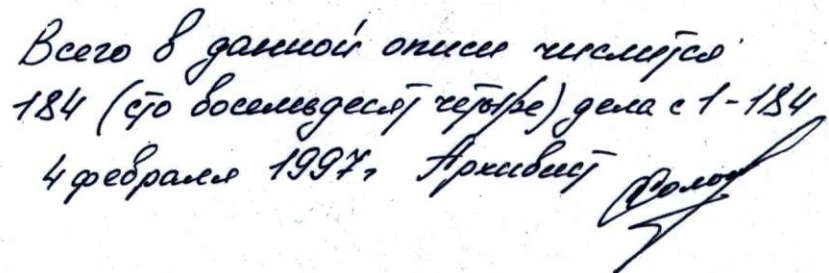 Всего в данной описи числится
184 (сто восемьдесят четыре) дела с 1-184
4 февраля 1997г Архивист